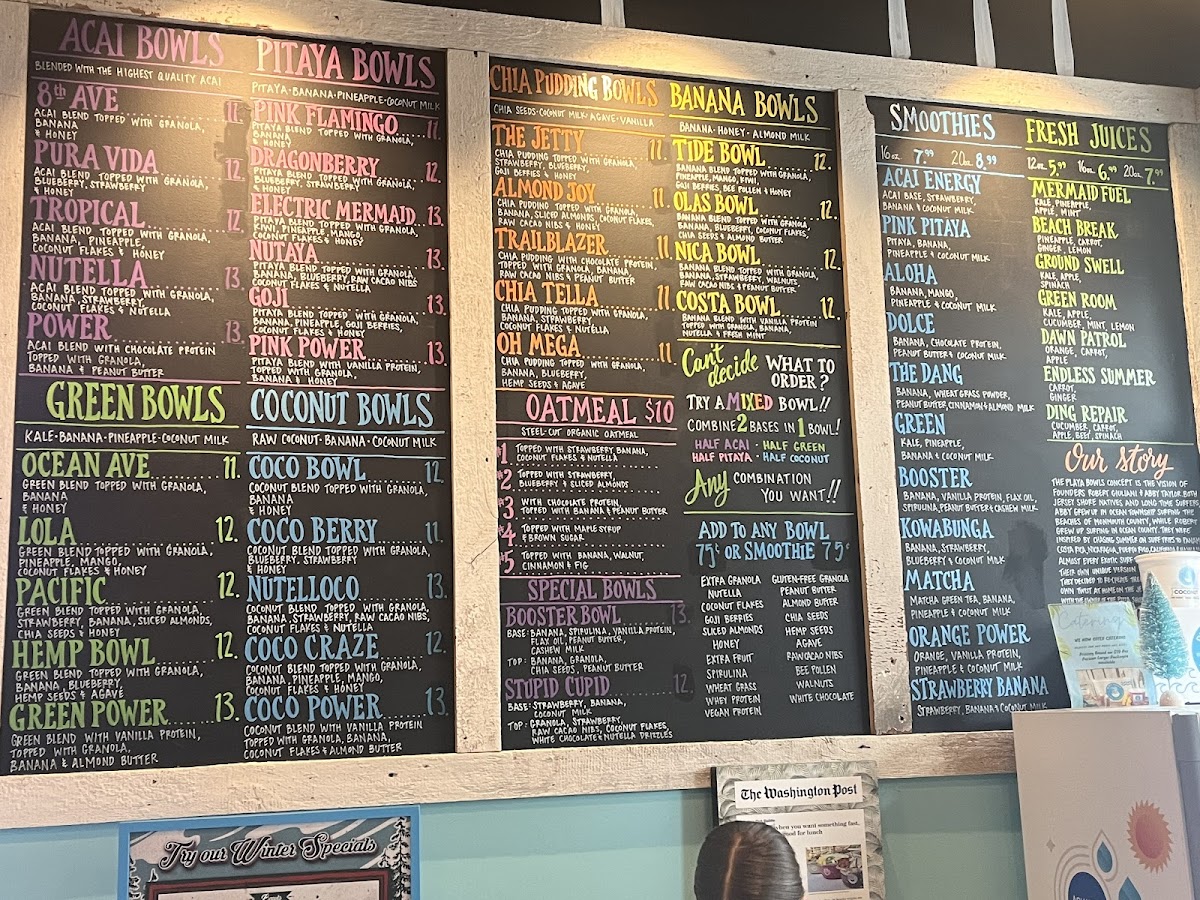 ACAI BOWLS
BLENDED WITH THE HIGHEST QUALITY ACAI
8th AVE 11.
ACAI BLEND TOPPED WITH GRANOLA,
BANANA
& HONEY
PURA VIDA 12.
ACAI BLEND TOPPED WITH GRANOLA,
BLUEBERRY, STRAWBERRY
& HONEY
TROPICAL 12.
ACAI BLEND TOPPED WITH GRANOLA,
BANANA, PINEAPPLE,
COCONUT FLAKES & HONEY
NUTELLA 13.
ACAI BLEND TOPPED WITH GRANOLA,
BANANA, STRAWBERRY,
COCONUT FLAKES & NUTELLA
POWER 13.
ACAI BLEND WITH CHOCOLATE PROTEIN
TOPPED WITH GRANOLA,
BANANA & PEANUT BUTTER
GREEN BOWLS
KALE·BANANA·PINEAPPLE·COCONUT MILK
OCEAN AVE 11.
GREEN BLEND TOPPED WITH GRANOLA,
BANANA
& HONEY
LOLA 12.
GREEN BLEND TOPPED WITH GRANOLA,
PINEAPPLE, MANGO,
COCONUT FLAKES & HONEY
PACIFIC 12.
GREEN BLEND TOPPED WITH GRANOLA,
STRAWBERRY, BANANA, SLICED ALMONDS,
CHIA SEEDS & HONEY
HEMP BOWL 12.
GREEN BLEND TOPPED WITH GRANOLA,
BANANA, BLUEBERRY,
HEMP SEEDS & AGAVE
GREEN POWER 13.
GREEN BLEND WITH VANILLA PROTEIN,
TOPPED WITH GRANOLA,
BANANA & ALMOND BUTTER
PITAYA BOWLS
PITAYA·BANANA·PINEAPPLE·COCONUT MILK
PINK FLAMINGO 11.
PITAYA BLEND TOPPED WITH GRANOLA,
BANANA
& HONEY
DRAGONBERRY 12.
PITAYA BLEND TOPPED WITH GRANOLA,
BLUEBERRY, STRAWBERRY
& HONEY
ELECTRIC MERMAID 13.
KIWI, PINEAPPLE, MANGO,
COCONUT FLAKES & HONEY
NUTAYA 13.
PITAYA BLEND TOPPED WITH GRANOLA,
BANANA, BLUEBERRY, RAW CACAO NIBS
COCONUT FLAKES & NUTELLA
GOJI 13.
PITAYA BLEND TOPPED WITH GRANOLA,
BANANA, PINEAPPLE, GOJI BERRIES,
COCONUT FLAKES & HONEY
PINK POWER 13.
PITAYA BLEND WITH VANILLA PROTEIN,
TOPPED WITH GRANOLA,
BANANA & HONEY
COCONUT BOWLS
RAW COCONUT·BANANA·COCONUT MILK
COCO BOWL 12.
COCONUT BLEND TOPPED WITH GRANOLA,
BANANA
& HONEY
COCO BERRY 11.
COCONUT BLEND TOPPED WITH GRANOLA,
BLUEBERRY, STRAWBERRY
& HONEY
NUTELLOCO 13.
COCONUT BLEND TOPPED WITH GRANOLA,
BANANA, STRAWBERRY, RAW CACAO NIBS,
COCONUT FLAKES & NUTELLA
COCO CRAZE 12.
COCONUT BLEND TOPPED WITH GRANOLA,
BANANA, PINEAPPLE, MANGO,
COCONUT FLAKES & HONEY
COCO POWER 13.
COCONUT BLEND WITH VANILLA PROTEIN
TOPPED WITH GRANOLA, BANANA,
COCONUT FLAKES & ALMOND BUTTER
CHIA PUDDING BOWLS
CHIA SEEDS·COCONUT MILK·AGAVE·VANILLA
THE JETTY 11.
CHIA PUDDING TOPPED WITH GRANOLA,
STRAWBERRY, BLUEBERRY,
GOJI BERRIES & HONEY
ALMOND JOY 11.
CHIA PUDDING TOPPED WITH GRANOLA,
BANANA, SLICED ALMONDS, COCONUT FLAKES,
RAW CACAO NIBS & HONEY
TRAILBLAZER 11.
CHIA PUDDING WITH CHOCOLATE PROTEIN,
TOPPED WITH GRANOLA, BANANA,
RAW CACAO NIBS & PEANUT BUTTER
CHIA TELLA 11.
CHIA PUDDING TOPPED WITH GRANOLA,
BANANA, STRAWBERRY
COCONUT FLAKES & NUTELLA
OH MEGA 11.
CHIA PUDDING TOPPED WITH GRANOLA,
BANANA, BLUEBERRY,
HEMP SEEDS & AGAVE
OATMEAL $10
STEEL-CUT ORGANIC OATMEAL
#1 TOPPED WITH STRAWBERRY, BANANA,
COCONUT FLAKES & NUTELLA
#2 TOPPED WITH STRAWBERRY,
BLUEBERRY & SLICED ALMONDS
#3 WITH CHOCOLATE PROTEIN,
TOPPED WITH BANANA & PEANUT BUTTER
#4 TOPPED WITH MAPLE SYRUP
& BROWN SUGAR
#5 TOPPED WITH BANANA, WALNUT,
CINNAMON & FIG
SPECIAL BOWLS
BOOSTER BOWL 13.
BASE: BANANA, SPIRULINA, VANILLA PROTEIN,
FLAX OIL, PEANUT BUTTER,
CASHEW MILK
TOP: BANANA, GRANOLA,
CHIA SEEDS, PEANUT BUTTER
STUPID CUPID 12.
BASE: STRAWBERRY, BANANA,
COCONUT MILK
TOP: GRANOLA, STRAWBERRY,
RAW CACAO NIBS, COCONUT FLAKES,
WHITE CHOCOLATE & NUTELLA DRIZZLES
BANANA BOWLS
BANANA·HONEY·ALMOND MILK
TIDE BOWL 12.
BANANA BLEND TOPPED WITH GRANOLA,
PINEAPPLE, MANGO, KIWI,
GOJI BERRIES, BEE POLLEN & HONEY
OLAS BOWL 12.
BANANA BLEND TOPPED WITH GRANOLA,
BANANA, BLUEBERRY, COCONUT FLAKES,
CHIA SEEDS & ALMOND BUTTER
NICA BOWL 12.
BANANA BLEND TOPPED WITH GRANOLA,
BANANA, STRAWBERRY, WALNUTS,
RAW CACAO NIBS & PEANUT BUTTER
COSTA BOWL 12.
BANANA BLEND WITH VANILLA PROTEIN
TOPPED WITH GRANOLA, BANANA,
NUTELLA & FRESH MINT
Can't decide WHAT TO ORDER?
TRY A MIXED BOWL!!
COMBINE 2 BASES IN 1 BOWL!
HALF ACAI - HALF GREEN
HALF PITAYA - HALF COCONUT
Any COMBINATION
YOU WANT!!
ADD TO ANY BOWL
75¢ OR SMOOTHIE 75¢
EXTRA GRANOLA
NUTELLA
COCONUT FLAKES
GOJI BERRIES
SLICED ALMONDS
HONEY
EXTRA FRUIT
SPIRULINA
WHEAT GRASS
WHEY PROTEIN
VEGAN PROTEIN
GLUTEN-FREE GRANOLA
PEANUT BUTTER
ALMOND BUTTER
CHIA SEEDS
HEMP SEEDS
AGAVE
RAW CACAO NIBS
BEE POLLEN
WALNUTS
WHITE CHOCOLATE
SMOOTHIES
16oz. 7.99 20oz. 8.99
ACAI ENERGY
ACAI BASE, STRAWBERRY,
BANANA & COCONUT MILK
PINK PITAYA
PITAYA, BANANA,
PINEAPPLE & COCONUT MILK
ALOHA
BANANA, MANGO,
PINEAPPLE & COCONUT MILK
DOLCE
BANANA, CHOCOLATE PROTEIN,
PEANUT BUTTER & COCONUT MILK
THE DANG
BANANA, WHEAT GRASS POWDER,
PEANUT BUTTER, CINNAMON & ALMOND MILK
GREEN
KALE, PINEAPPLE,
BANANA & COCONUT MILK
BOOSTER
BANANA, VANILLA PROTEIN, FLAX OIL,
SPIRULINA, PEANUT BUTTER & CASHEW MILK
KOWABUNGA
BANANA, STRAWBERRY,
BLUEBERRY & COCONUT MILK
MATCHA
MATCHA GREEN TEA, BANANA,
PINEAPPLE & COCONUT MILK
ORANGE POWER
ORANGE, VANILLA PROTEIN,
PINEAPPLE & COCONUT MILK
STRAWBERRY BANANA
STRAWBERRY, BANANA & COCONUT MILK
FRESH JUICES
12oz. 5.99 16oz. 6.99 20oz. 7.99
MERMAID FUEL
KALE, PINEAPPLE,
APPLE, MINT
BEACH BREAK
PINEAPPLE, CARROT,
GINGER, LEMON
GROUND SWELL
KALE, APPLE
SPINACH
GREEN ROOM
KALE, APPLE,
CUCUMBER, MINT, LEMON
DAWN PATROL
ORANGE, CARROT,
APPLE
ENDLESS SUMMER
CARROT,
GINGER
DING REPAIR
CUCUMBER, CARROT,
APPLE, BEET, SPINACH
Our story
THE PLAYA BOWLS CONCEPT IS THE VISION OF
FOUNDERS ROBERT GIULIANI & ABBY TAYLOR. BOTH
JERSEY SHORE NATIVES AND LONG TIME SURFERS,
ABBY GREW UP IN OCEAN TOWNSHIP SURFING THE
BEACHES OF MONMOUTH COUNTY, WHILE ROBERT
GREW UP SURFING IN OCEAN COUNTY. THEY WERE
INSPIRED BY CHASING SUMMER ON SURF TRIPS TO
COSTA RICA, NICARAGUA, PUERTO RICO, CALIFORNIA
ALMOST EVERY EXOTIC SURF
THEIR OWN UNIQUE VERSION
THEY DECIDED TO RE-CREATE
OWN TWIST AT HOME ON THE
Catering
WE NOW OFFER CATERING
COCONUT
Try our Winter Specials
The Washington Post
when you want something fast,
food for lunch